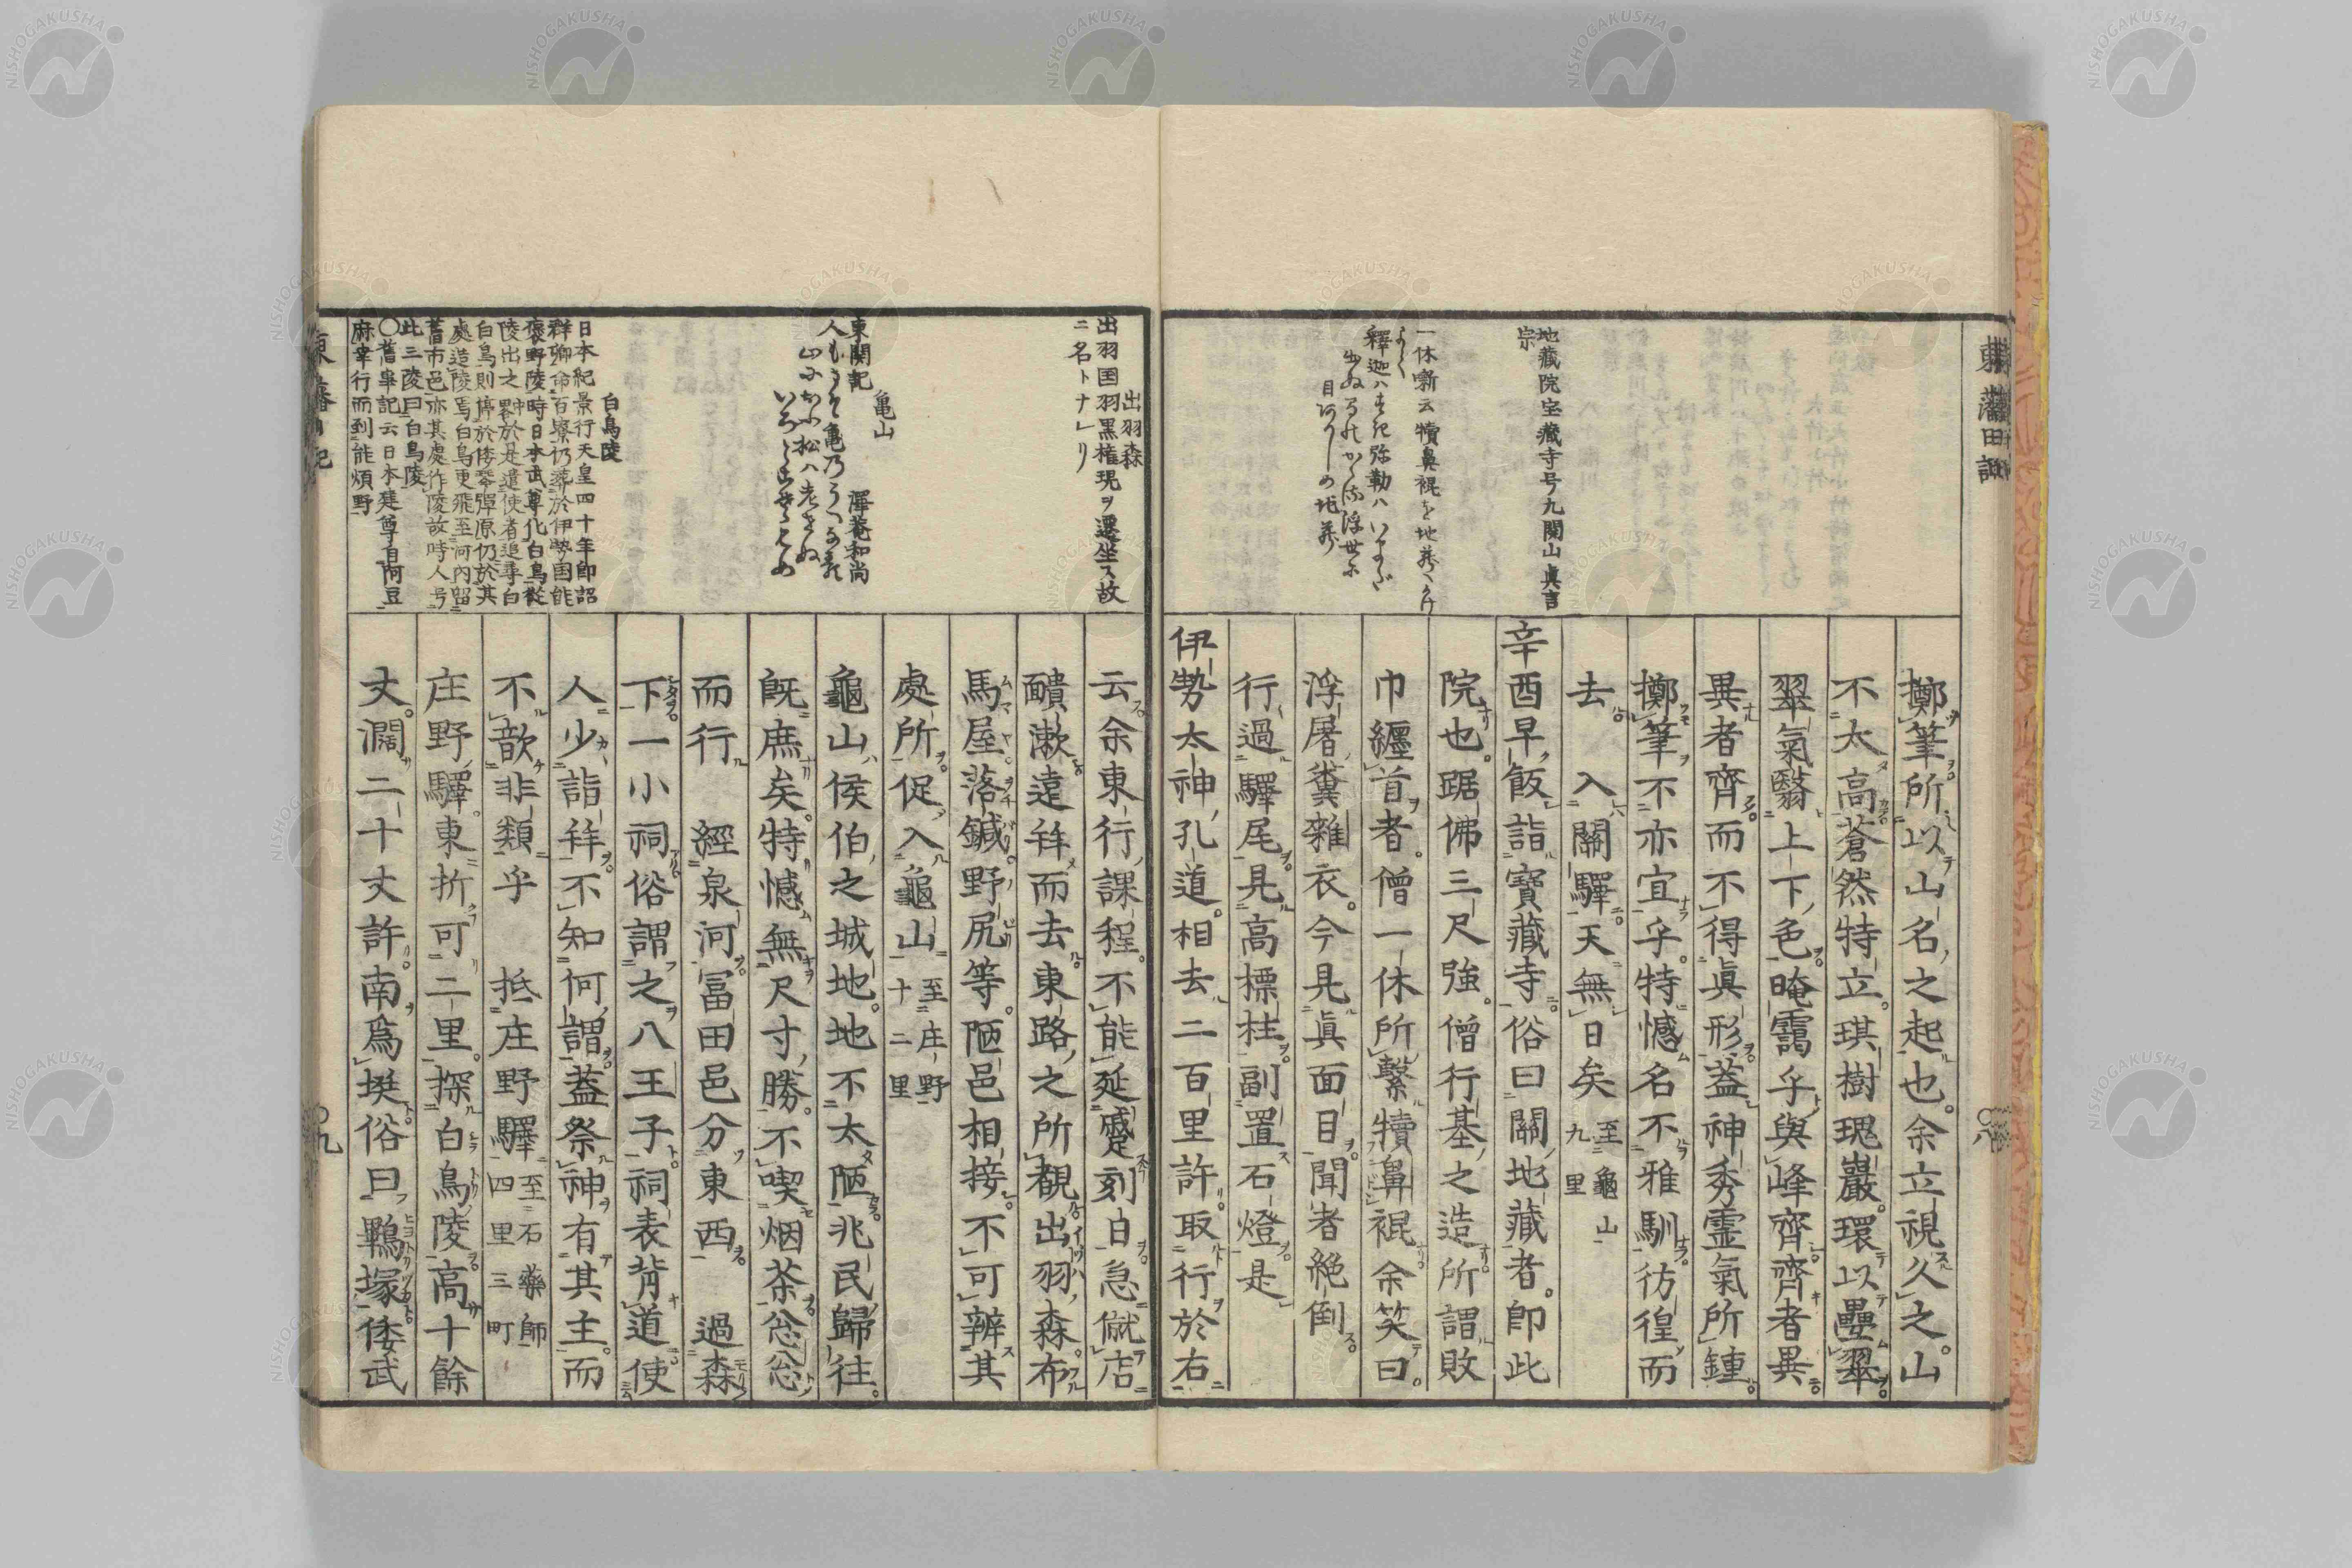 擲筆所以山名之起也余立視久之山
不太高蒼然特立琪樹瑰巖環以壘翠
翠氣翳上下色晻靄乎與峰齊齊者異
異者齊而不得眞形蓋神秀霊氣所鍾
擲筆不亦宜乎特憾名不雅馴彷徨而
去　入關驛天無日矣 至龜山九里
辛酉早飯詣寶藏寺俗曰關地藏者即此
院也踞佛三尺強僧行基之造所謂敗
巾纒首者僧一休所繫犢鼻裩余笑曰
浮屠糞雜衣今見眞面目聞者絶倒
行過驛尾見高標柱副置石燈是
伊勢太神孔道相去二百里許取行於右
地藏院宝藏寺号九関山眞言
宗
一休噺云犢鼻裩を地蔵にかけ
云余東行課程不能延蹙刻白急僦店
醋漱遠拜而去東路之所觀出羽森布
馬屋落鍼野尻等陋邑相接不可辨其
處所促入龜山 至庄野十二里
龜山侯伯之城地地不太陋兆民歸往
既庶矣特憾無尺寸勝不喫烟茶忩忩
而行　經泉河冨田邑分東西　過森
下一小祠俗謂之八王子祠表背道使
人少詣拜不知何謂蓋祭神有其主而
不歆非類乎　抵庄野驛 至石藥師四里三町
庄野驛東折可二里探白鳥陵高十餘
丈濶二十丈許南爲埏俗曰鵯塚倭武
出羽森
出羽国羽黒権現ヲ遷坐ス故
ニ名トナレリ
亀山
東関記　澤菴和尚
白鳥陵
日本紀景行天皇四十年即詔
群卿命百寮仍葬於伊勢国能
褒野陵時日本武尊化白鳥從
陵出之畧於是遣使者追尋白
白鳥則停於倭琴彈原仍於其
處造陵焉白鳥更飛至河内留
舊市邑亦其處作陵故時人号
此三陵曰白鳥陵
〇舊事記云日本建尊自阿豆
麻幸行而到能煩野
〇九